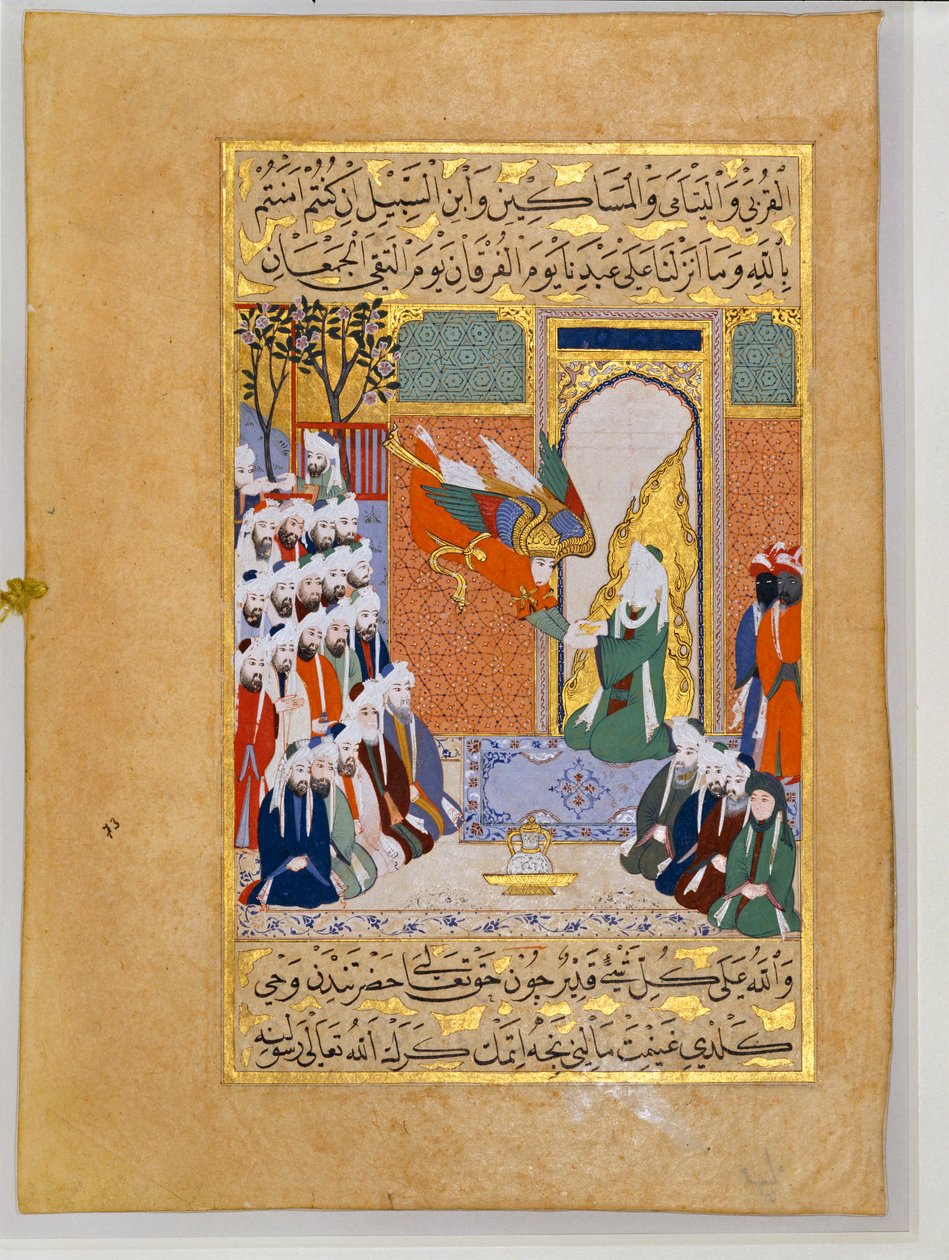 الْقُرْبَى وَالْيَتَامَى وَالْمَسَاكِينِ وَابْنِ السَّبِيلِ اِنْ كُنْتُمْ اٰمَنْتُمْ
بِاللّٰهِ وَمَا اَنْزَلْنَا عَلَى عَبْدِنَا يَوْمَ الْفُرْقَانِ يَوْمَ الْتَقَى الْجَمْعَانِ
وَاللّٰهُ عَلَى كُلِّ شَيْءٍ قَدِيرٌ چون حق تعالى حضرتندن وحي
كلدي غنيمت مالني نجه اتمك كرك الله تعالى رسولينه
73